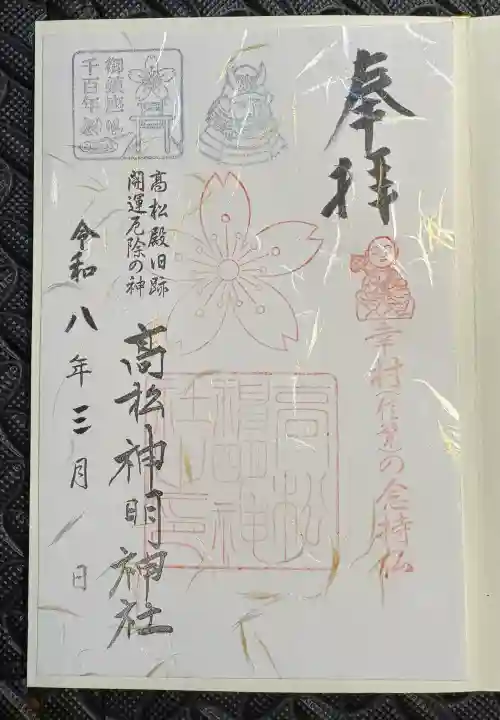 奉拝
幸村伝来の念持仏
高松神明神社
高松殿旧跡
開運厄除の神
令和八年三月 日
御鎮座
千百年
高松
神明神
社之印